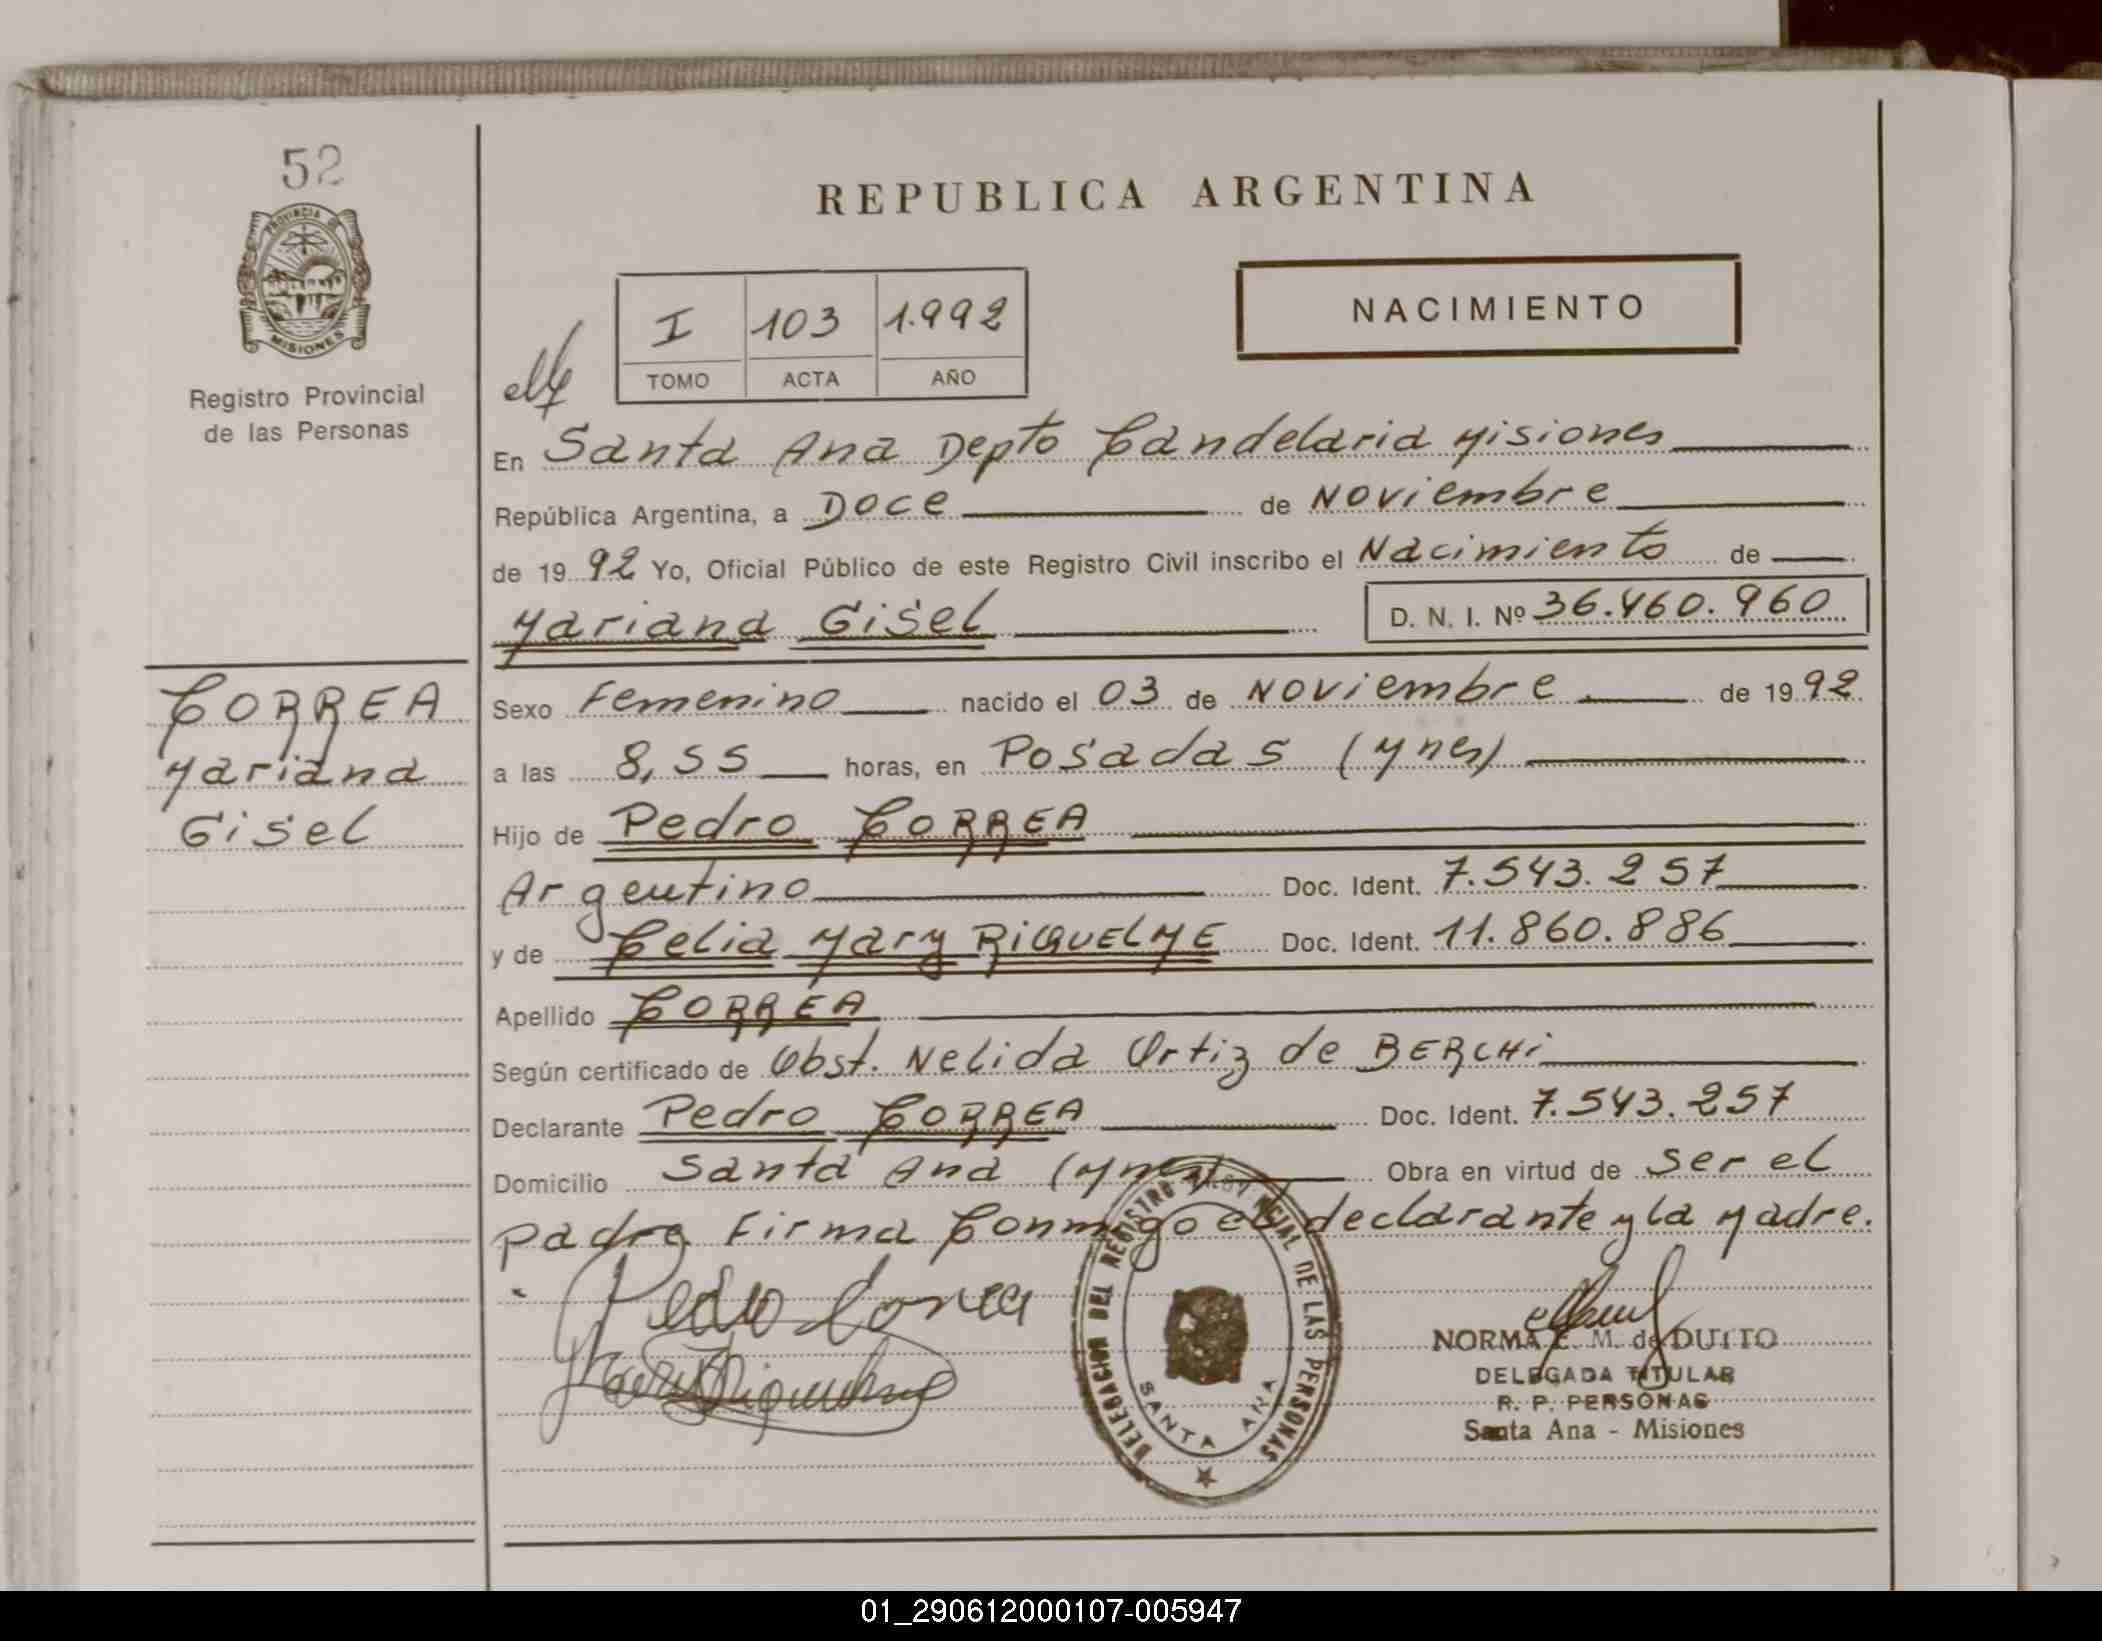 52
PROVINCIA DE
MISIONES
Registro Provincial
de las Personas
CORREA
Mariana
Gisel
REPUBLICA ARGENTINA
I 103 1.992
TOMO ACTA AÑO
NACIMIENTO
En Santa Ana Depto Candelaria Misiones
República Argentina, a Doce de Noviembre
de 19 92 Yo, Oficial Público de este Registro Civil inscribo el Nacimiento de
Mariana Gisel D. N. I. Nº 36.460.960
Sexo Femenino nacido el 03 de Noviembre de 19 92
a las 8,55 horas, en Posadas (Mnes)
Hijo de Pedro CORREA
Argentino Doc. Ident. 7.543.257
y de Celia Mary RIQUELME Doc. Ident. 11.860.886
Apellido CORREA
Según certificado de Obst. Nelida Ortiz de BERCHi
Declarante Pedro CORREA Doc. Ident. 7.543.257
Domicilio Santa Ana (Mnes) Obra en virtud de ser el
padre. Firma Conmigo el declarante y la Madre.
Pedro Correa
DELEGACION DEL REGISTRO PROVINCIAL DE LAS PERSONAS
SANTA ANA
NORMA E. M. de DUTTO
DELEGADA TITULAR
R. P. PERSONAS
Santa Ana - Misiones
01_290612000107-005947